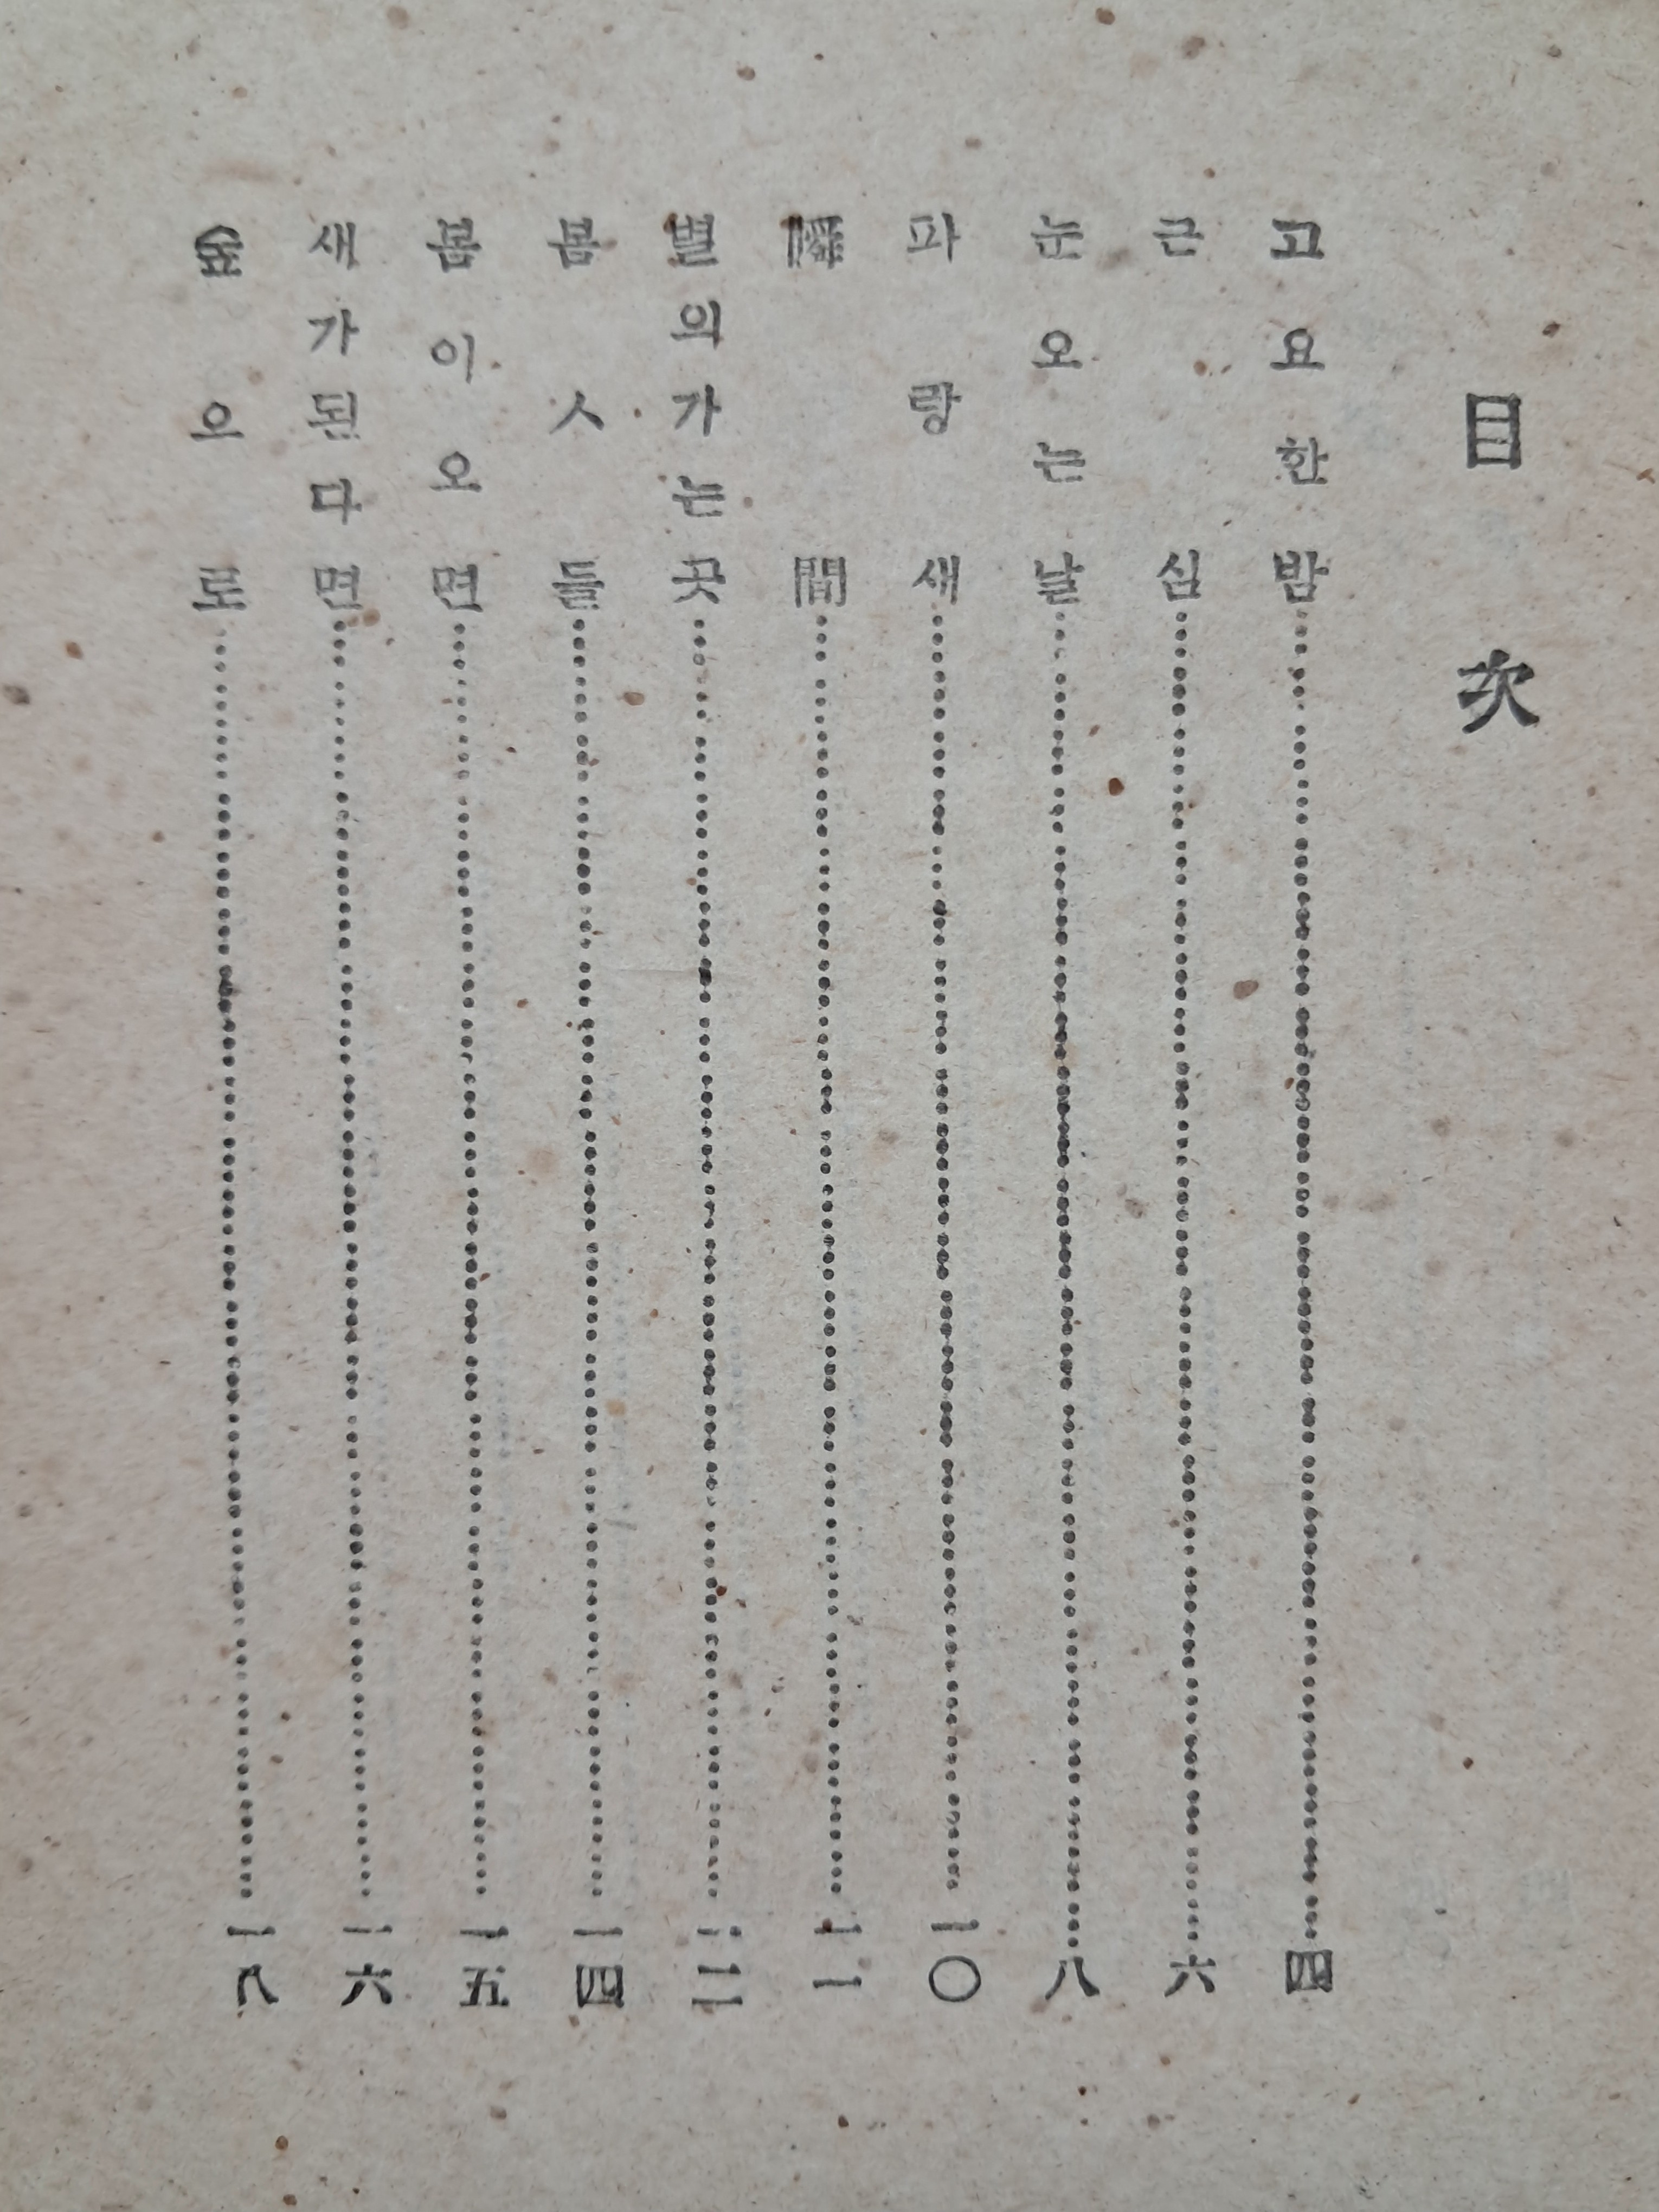 目次
고요한밤……四
근심……六
눈오는날……八
파랑새……一〇
瞬間……一一
별의가는곳……一二
봄ㅅ들……一四
봄이오면……一五
새가된다면……一六
숲으로……一八